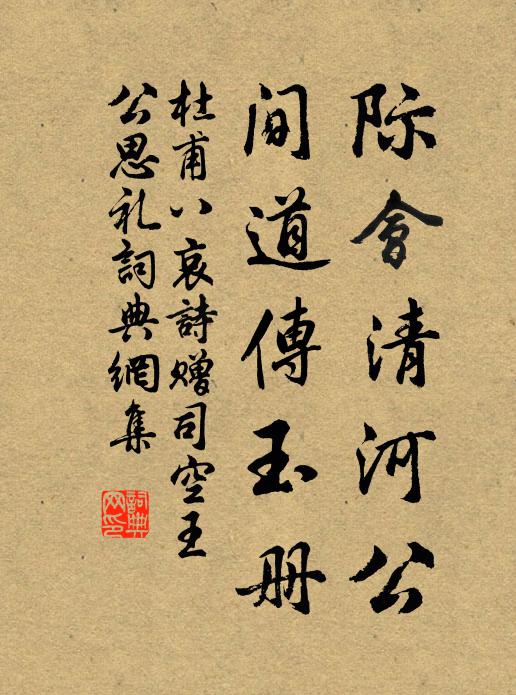 际會清河公
间道傳玉册
杜甫八哀詩赠司空王
公思礼詞典網集
詞典网印